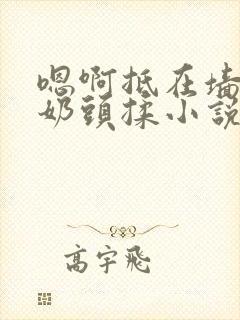 嗯啊抵在墙
奶頭揉小説
高宇飛